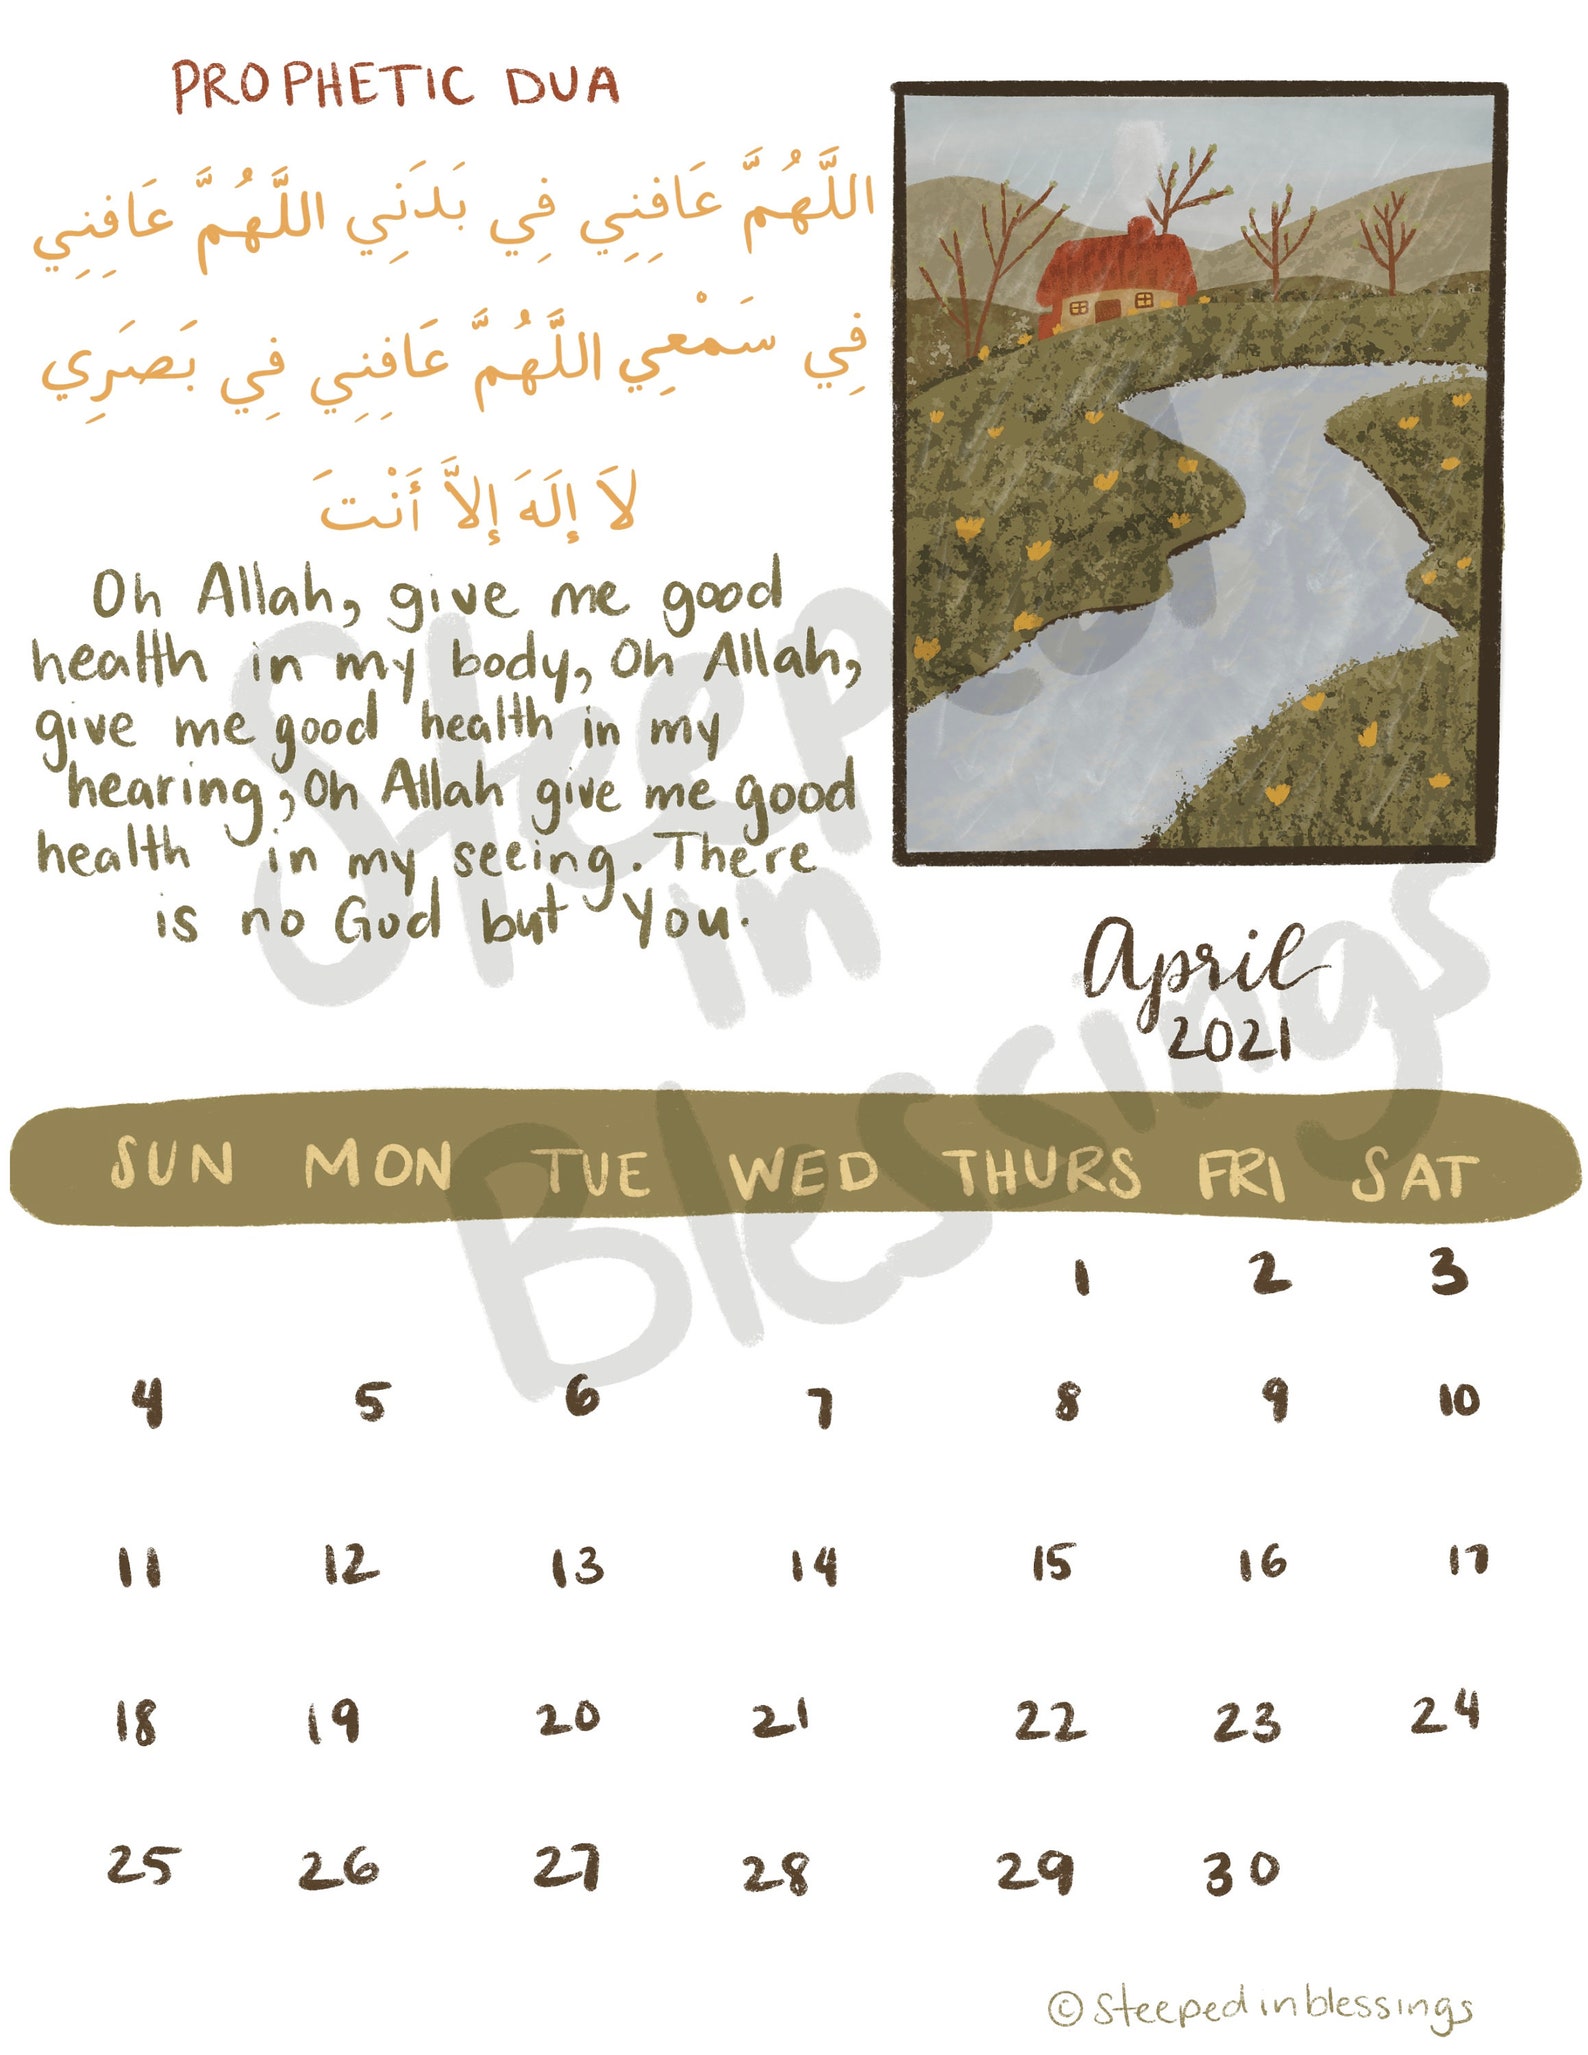 PROPHETIC DUA
اللَّهُمَّ عَافِنِي فِي بَدَنِي اللَّهُمَّ عَافِنِي
فِي سَمْعِي اللَّهُمَّ عَافِنِي فِي بَصَرِي
لاَ إِلَهَ إِلاَّ أَنْتَ
Oh Allah, give me good
health in my body, Oh Allah,
give me good health in my
hearing, Oh Allah give me good
health in my seeing. There
is no God but You.
Steep
in
Blessings
April
2021
SUN MON TUE WED THURS FRI SAT
1 2 3
4 5 6 7 8 9 10
11 12 13 14 15 16 17
18 19 20 21 22 23 24
25 26 27 28 29 30
© Steepedinblessings